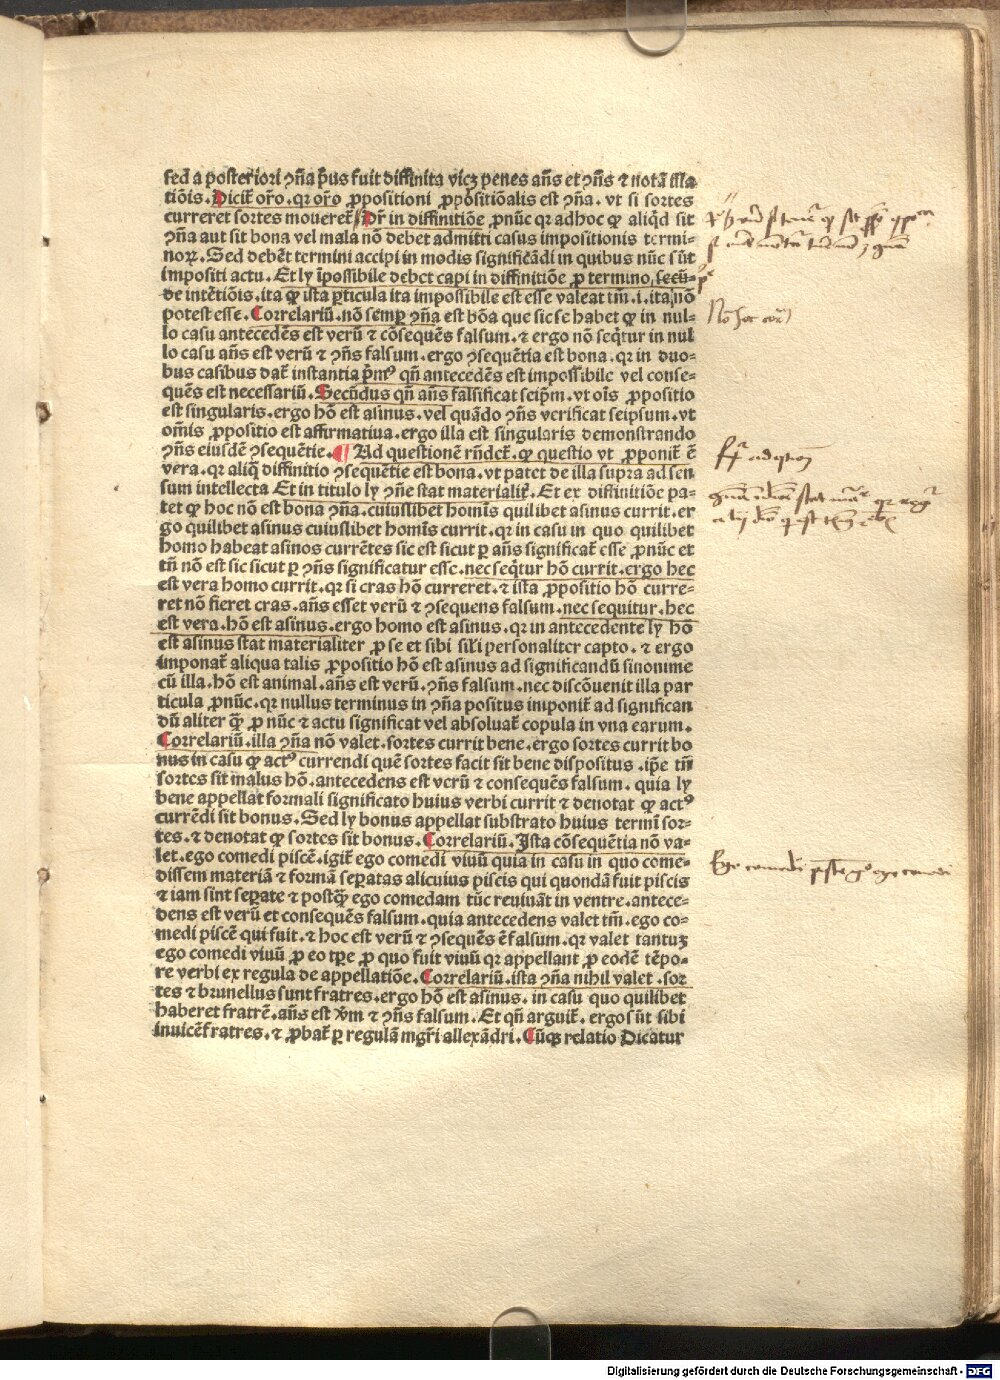 sed a posteriori ꝯña p̄us fuit diffinita vicꝫ penes añs et ꝯñs ⁊ notā illa
tiōis. Dicit̄ or̄o. qꝛ or̄o ꝓpositioni ꝓpositiōalis est ꝯña. vt si sortes
curreret sortes moueret̄. Dr̄ in diffinitiōe ꝓnūc qꝛ adhoc ꝙ aliqd̄ sit
ꝯña aut sit bona vel mala nō debet admitti casus impositionis termi-
noꝝ. Sed debēt termini accipi in modis significādi in quibus nūc sūt
impositi actu. Et ly īpossibile debet capi in diffinitiōe ꝓ termino secū-
de intētiōis. ita ꝙ ista ꝑticula ita impossibile est esse valeat tm̄. i. ita nō
potest esse. Correlariū. nō semꝑ ꝯña est bōa que sic se habet ꝙ in nul-
lo casu antecedēs est verū ⁊ cōsequēs falsum. ⁊ ergo nō seq̄tur in nul
lo casu añs est verū ⁊ ꝯñs falsum. ergo ꝯsequētia est bona. qꝛ in duo-
bus casibus dat̄ instantia p̄mꝰ qn̄ antecedēs est impossibile vel conse-
quēs est necessariū. Secūdus qn̄ añs falsificat seip̄m. vt oīs ꝓpositio
est singularis. ergo hō est asinus. vel quādo ꝯñs verificat seipsum. vt
om̄is ꝓpositio est affirmatiua. ergo illa est singularis demonstrando
ꝯñs eiusdē ꝯsequētie. ¶ Ad questionē rn̄det̄. ꝙ questio vt ꝓponit̄ ē
vera. qꝛ aliq̄ diffinitio ꝯsequētie est bona. vt patet de illa supra ad sen
sum intellecta Et in titulo ly ꝯñe stat materialit̄. Et ex diffinitiōe pa-
tet ꝙ hoc nō est bona ꝯña. cuiuslibet homīs quilibet asinus currit. er
go quilibet asinus cuiuslibet homīs currit. qꝛ in casu in quo quilibet
homo habeat asinos currētes sic est sicut ꝑ añs significat̄ esse ꝓnūc et
tn̄ nō est sic sicut ꝑ ꝯñs significatur esse. nec seq̄tur hō currit. ergo hec
est vera homo currit. qꝛ si cras hō curreret. ⁊ ista ꝓpositio hō curre-
ret nō fieret cras. añs esset verū ⁊ ꝯsequens falsum. nec sequitur. hec
est vera. hō est asinus. ergo homo est asinus. qꝛ in antecedente ly hō
est asinus stat materialiter ꝓ se et sibi sil̄i personaliter capto. ⁊ ergo
imponat̄ aliqua talis ꝓpositio hō est asinus ad significandū sinonime
cū illa. hō est animal. añs est verū. ꝯñs falsum. nec discōuenit illa par
ticula ꝓnūc. qꝛ nullus terminus in ꝯña positus imponit̄ ad significan
dū aliter q̄ꝫ ꝓ nūc ⁊ actu significat vel absoluat̄ copula in vna earum.
Correlariū. illa ꝯña nō valet. sortes currit bene. ergo sortes currit bo
nus in casu ꝙ actꝰ currendi quē sortes facit sit bene dispositus. ip̄e tn̄
sortes sit malus hō. antecedens est verū ⁊ consequēs falsum. quia ly
bene appellat formali significato huius verbi currit ⁊ denotat ꝙ actꝰ
currēdi sit bonus. Sed ly bonus appellat substrato huius termī sor-
tes. ⁊ denotat ꝙ sortes sit bonus. Correlariū. Ista cōsequētia nō va-
let. ego comedi piscē. igit̄ ego comedi viuū quia in casu in quo come-
dissem materiā ⁊ formā seꝑatas alicuius piscis qui quondā fuit piscis
⁊ iam sint seꝑate ⁊ postq̄ꝫ ego comedam tūc reuiuāt in ventre. antece-
dens est verū et consequēs falsum. quia antecedens valet tm̄. ego co-
medi piscē qui fuit. ⁊ hoc est verū ⁊ ꝯsequēs ē falsum. qꝛ valet tantuꝫ
ego comedi viuū ꝓ eo tp̄e ꝓ quo fuit viuū qꝛ appellant ꝓ eodē tēpo-
re verbi ex regula de appellatiōe. Correlariū. ista ꝯña nihil valet. sor
tes ⁊ brunellus sunt fratres. ergo hō est asinus. in casu quo quilibet
haberet fratrē. añs est v̄m ⁊ ꝯñs falsum. Et qn̄ arguit̄. ergo sūt sibi
inuicē fratres. ⁊ ꝓbat̄ ꝑ regulā mgr̄i allexādri. Cūqꝫ relatio Dicatur
Digitalisierung gefördert durch die Deutsche Forschungsgemeinschaft - DFG